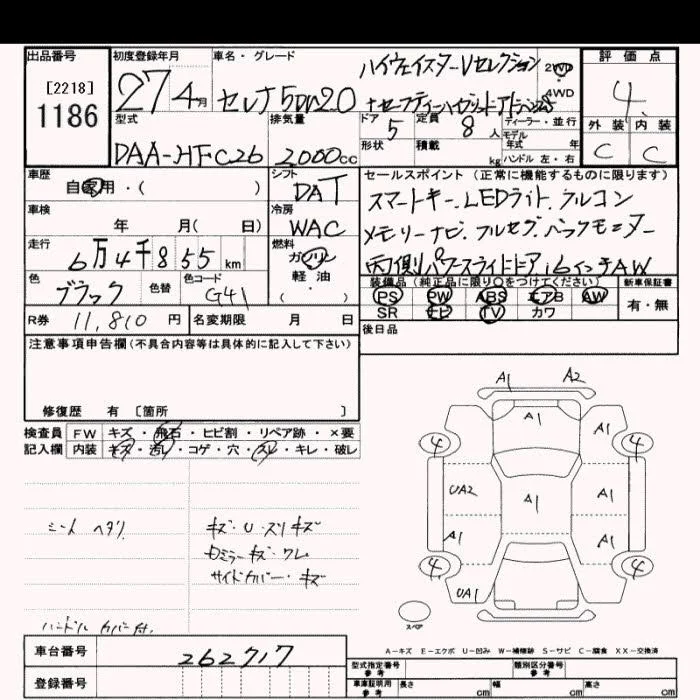 出品番号 初度登録年月 車名・グレード ハイウェイスターVセレクション 2WD 評価点
[2218] 27 4月 セレナ 5DW 2.0 4WD 4
1186 型式 排気量 ドア 5 定員 8 人 ディーラー・並行 外装 内装
DAA-HFC26 2000cc 形状 積載 kg モデル年式 年 ハンドル 左・右 C C
車歴 自家用・( ) シフト DAT セールスポイント (正常に機能するものに限ります)
車検 年 月( 日) 冷房 WAC スマートキー.LEDライト.クルコン
メモリーナビ.フルセグ.バックモニター
走行 6万4千855km 燃料 ガソリン 軽油 ( ・ ) 両側パワースライドドア 16インチAW
色 ブラック 色替 色コード G41 装備品 (純正品に限り○をつけてください) 新車保証書
PS PW ABS エアB AW 有・無
SR ナビ TV カワ
R券 11,810円 名変期限 月 日 後日品
注意事項申告欄 (不具合内容等は具体的に記入して下さい)
修復歴 有 [箇所 ]
検査員 FW キズ・飛石・ヒビ割・リペア跡・×要
記入欄 内装 キズ・汚レ・コゲ・穴・スレ・キレ・破レ
シートヘタリ キズ・U・スリキズ
ミラーキズ・ワレ
サイドカバー・キズ
ハンドルカバー付.
A1 A2
A1 A1
4 4
UA2 A1 A1
A1 A1
4 4
UA1
スペア
A-キズ E-エクボ U-凹み W-補修跡 S-サビ C-腐食 XX-交換済
車台番号 262717
登録番号
型式指定番号 参考 類別区分番号 参考
車庫証明用 参考 長さ cm 幅 cm 高さ cm